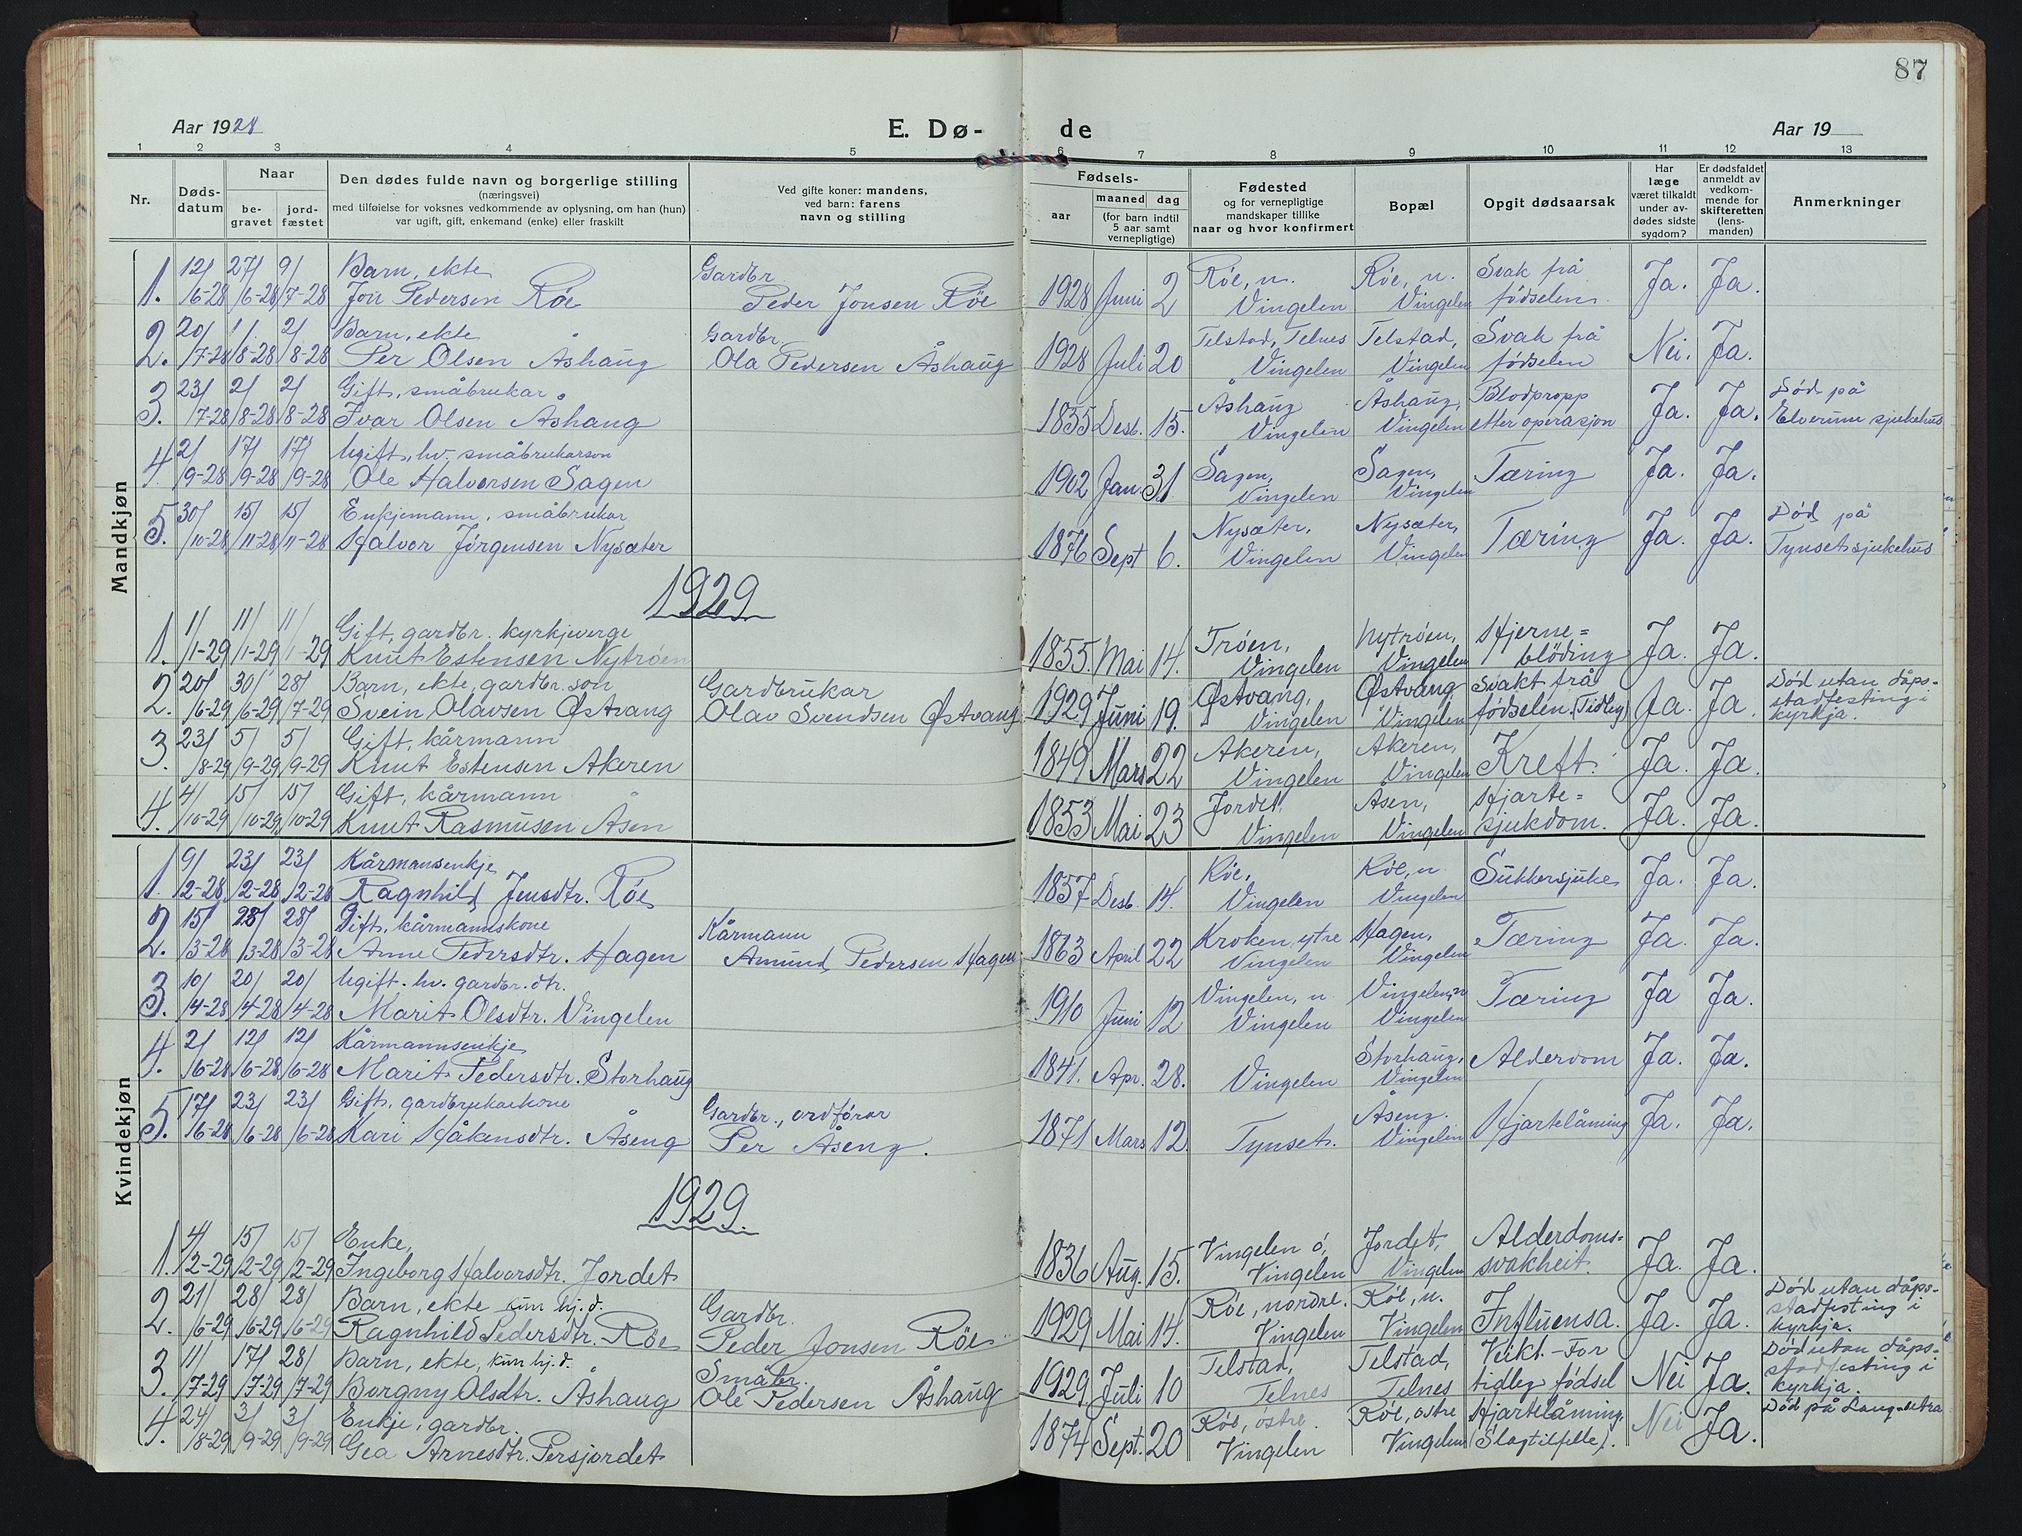 87
Aar 1928
E. Dø- de
Aar 19
1 2 3 4 5 6 7 8 9 10 11 12 13
Nr.
Døds-
datum
Naar
be-
gravet
jord-
fæstet
Den dødes fulde navn og borgerlige stilling
(næringsvei)
med tilføielse for voksnes vedkommende av oplysning, om han (hun)
var ugift, gift, enkemand (enke) eller fraskilt
Ved gifte koner: mandens,
ved barn: farens
navn og stilling
Fødsels-
aar
maaned dag
(for barn indtil
5 aar samt
vernepligtige)
Fødested
og for vernepligtige
mandskaper tillike
naar og hvor konfirmert
Bopæl
Opgit dødsaarsak
Har
læge
været tilkaldt
under av-
dødes sidste
sygdom?
Er dødsfaldet
anmeldt av
vedkom-
mende for
skifteretten
(lens-
manden)
Anmerkninger
Mandkjøn
12/ 27/ 9/ Barn, ekte Gardbr Røe, n. Røe, n. Svak frå
1. 6-28 6-28 7-28 Jon Pedersen Røe Peder Jonsen Røe 1928 Juni 2 Vingelen Vingelen fødselen. Ja. Ja.
20/ 1/ 2/ Barn, ekte Gardbr. Telstad, Telnes Telstad, Svak frå
2. 7-28 8-28 8-28 Per Olsen Åshaug Ola Pedersen Åshaug 1928 Juli 20 Vingelen Vingelen fødselen Nei. Ja.
23/ 2/ 2/ Gift, småbrukar Åshaug Åshaug, Blodpropp Død på
3. 7-28 8-28 8-28 Ivar Olsen Åshaug 1855 Desb. 15. Vingelen Vingelen etter operasjon Ja. Ja. Elverum sjukehus
2/ 17/ 17/ Ugift, hv. småbrukarson Sagen, Sagen,
4. 9-28 9-28 9-28 Ole Halvorsen Sagen 1902 Jan 31 Vingelen Vingelen Tæring Ja. Ja.
30/ 15/ 15/ Enkjemann, småbrukar Nysæter, Nysæter, Død på
5. 10-28 11-28 11-28 Halvor Jørgensen Nysæter 1876 Sept 6. Vingelen Vingelen Tæring Ja. Ja. Tynset sjukehus
1929
1/ 11/ 11/ Gift, gardbr. kyrkjeverge Trøen, Nytrøen, Hjerne=
1. 1-29 1-29 1-29 Knut Estensen Nytrøen 1855. Mai 14. Vingelen Vingelen blöding Ja. Ja.
20/ 30/ 28/ Barn, ekte, gardbr. son Gardbrukar Østvang, Østvang Svakt frå Død utan dåps-
2. 6-29 6-29 7-29 Svein Olavsen Østvang Olav Svendsen Østvang 1929 Juni 19. Vingelen Vingelen fødselen (Tidleg) Ja. Ja. stadfesting i
kyrkja.
23/ 5/ 5/ Gift, kårmann Akeren, Akeren,
3. 8-29 9-29 9-29 Knut Estensen Akeren 1849 Mars 22 Vingelen Vingelen Kreft. Ja. Ja.
4/ 15/ 15/ Gift, kårmann Jordet, Åsen, Hjarte=
4. 10-29 10-29 10-29 Knut Rasmusen Åsen 1853 Mai 23 Vingelen Vingelen sjukdom. Ja. Ja.
Kvindekjøn
9/ 23/ 23/ Kårmansenkje Røe, Røe, n.
1. 2-28 2-28 2-28 Ragnhild Jensdtr. Røe 1857 Desb. 14. Vingelen Vingelen Sukkersjuke Ja. Ja.
15/ 28/ 28/ Gift, kårmannskone Kårmann Kroken, ytre Hagen,
2. 3-28 3-28 3-28 Anne Pedersdtr. Hagen Amund Pedersen Hagen 1863 April 22 Vingelen Vingelen Tæring Ja. Ja.
10/ 20/ 20/ Ugift. hv. gardbr. dtr. Vingelen, n. Vingelen, n
3. 4-28 4-28 4-28 Marit Olsdtr. Vingelen 1910 Juni 12 Vingelen Vingelen Tæring Ja Ja.
2/ 12/ 12/ Kårmannsenkje Storhaug,
4. 6-28 6-28 6-28 Marit Pedersdtr. Storhaug 1841. Apr. 28. Vingelen Vingelen Alderdom Ja. Ja.
17/ 23/ 23/ Gift, gardbrukarkone Gardbr., ordførar Åseng.
5. 6-28 6-28 6-28 Kari Håkensdtr. Åseng Per Åseng. 1871 Mars 12. Tynset. Vingelen Hjartelåming Ja. Ja.
1929
4/ 15/ 15/ Enke, Vingelen ö, Jordet, Alderdoms=
1. 2-29 2-29 2-29 Ingeborg Halvorsdtr. Jordet 1836 Aug. 15. Vingelen Vingelen svakheit. Ja. Ja.
21/ 28/ 28/ Barn, ekte kun hj.d. Gardbr. Røe, nordre. Røe, n. Død utan dåps-
2. 6-29 6-29 6-29 Ragnhild Pedersdtr. Røe Peder Jonsen Røe 1929 Mai 14. Vingelen Vingelen Influensa. Ja. Ja. stadfesting i
kyrkja.
11/ 17/ 28/ Barn, ekte, kun hj.d. Småbr. Telstad, Telstad, Veikt.-For Død utan dåps-
3. 7-29 7-29 7-29 Borgny Olsdtr. Åshaug Ole Pedersen Åshaug 1929 Juli 10 Telnes Telnes tidleg fødsel Nei Ja. stadfesting i
kyrkja.
24/ 3/ 3/ Enkje, gardbr. Røe, østre. Røe, østre Hjartelåming Død på
4. 8-29 9-29 9-29 Gea Arnesdtr. Persjordet 1874 Sept. 20 Vingelen Vingelen (Slagtilfelle). Nei Ja.